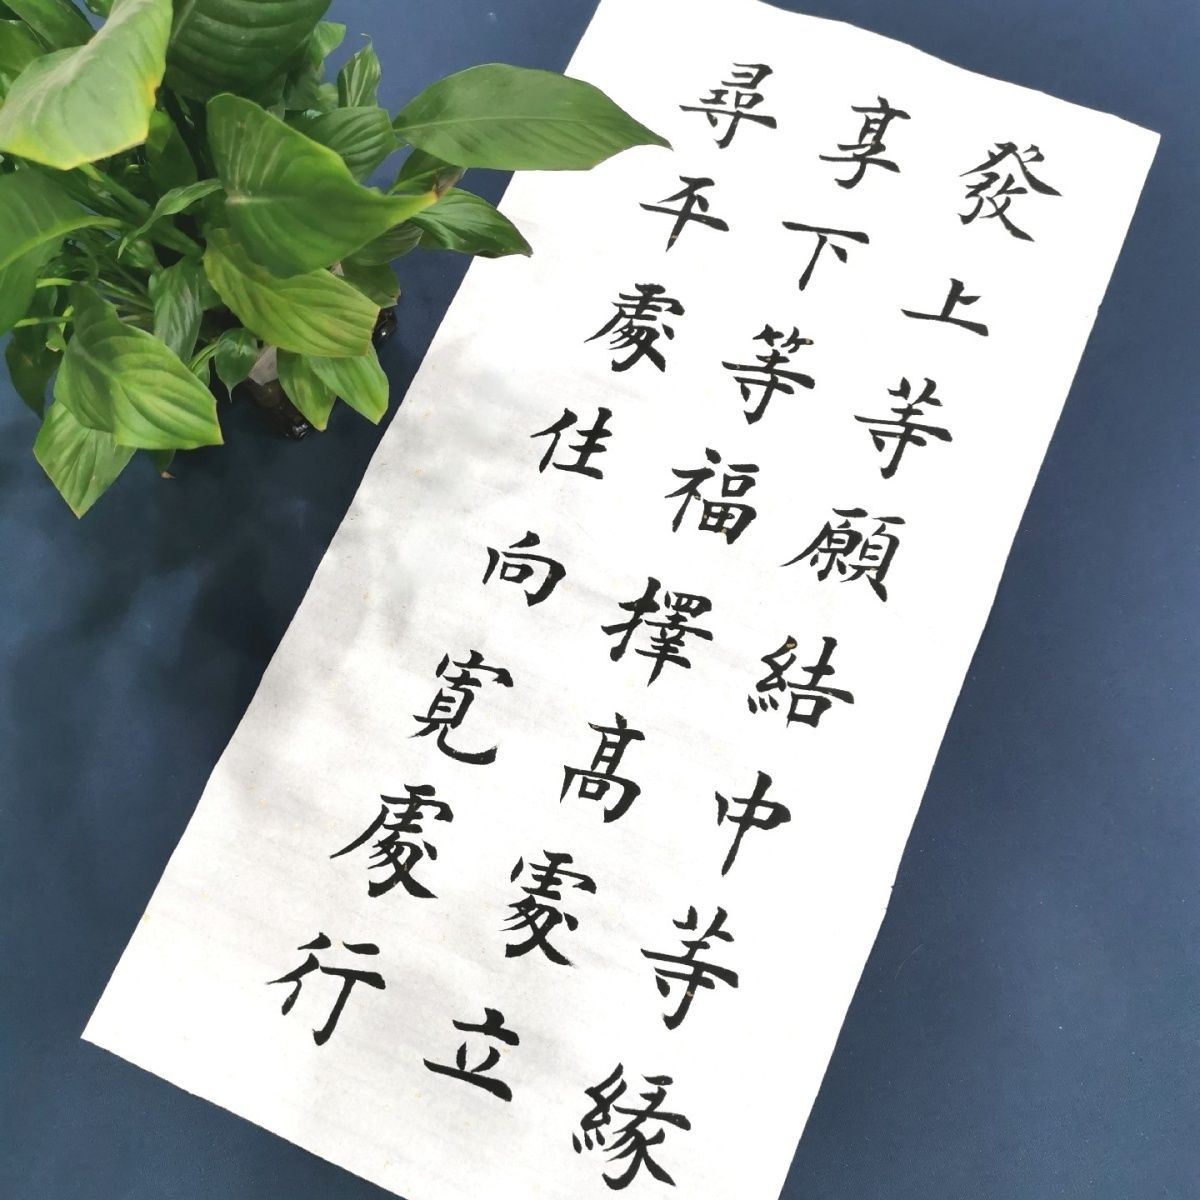 發上等願結中等緣
享下等福擇高處立
尋平處住向寬處行